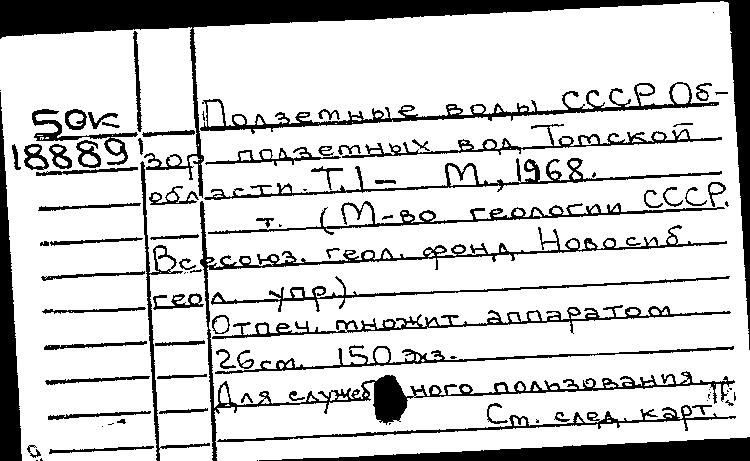 50К
18889
Подземные воды СССР. Об-
зор подземных вод Томской
области. Т.1— М., 1968.
т. (М-во геологии СССР.
Всесоюз. геол. фонд. Новосиб.
геол. упр.).
Отпеч. множит. аппаратом
26 см. 150 экз.
Для служебного пользования.
Ст. след. карт.